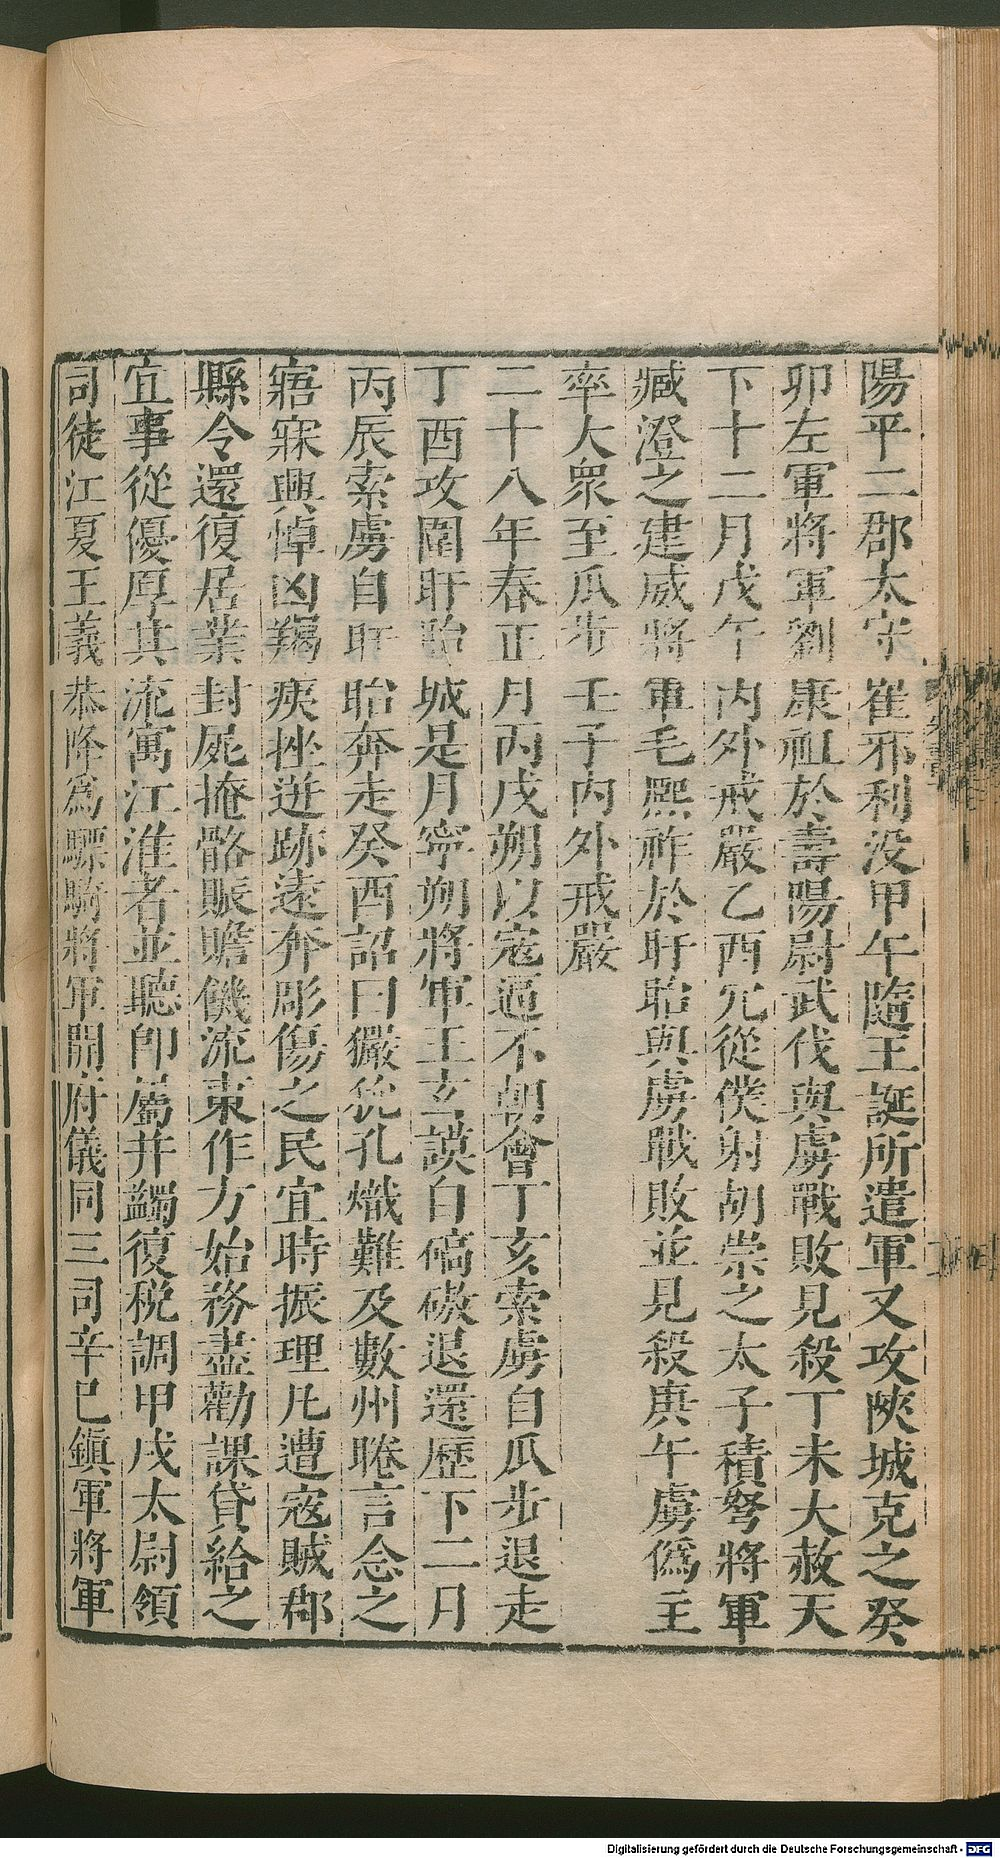 陽平二郡太守崔邪利没甲午隨王誕所遣軍又攻陝城克之癸
卯左軍將軍劉康祖於壽陽尉武伐與虜戰敗見殺丁未大赦天
下十二月戊午内外戒嚴乙酉冗從僕射胡崇之太子積弩將軍
臧澄之建威將軍毛熙祚於盱眙與虜戰敗並見殺庚午虜僞主
率大衆至瓜步壬子内外戒嚴
二十八年春正月丙戌朔以寇逼不朝會丁亥索虜自瓜步退走
丁酉攻圍盱眙城是月寧朔將軍王玄謨自碻磝退還歷下二月
丙辰索虜自盱眙奔走癸酉詔曰玁狁孔熾難及數州眷言念之
寤寐興悼凶羯痍挫迸跡遠奔彫傷之民宜時振理凡遭寇賊郡
縣令還復居業封屍掩骼賑贍饑流東作方始務盡勸課貸給之
宜事從優厚其流寓江淮者並聽即屬并蠲復税調甲戌太尉領
司徒江夏王義恭降爲驃騎將軍開府儀同三司辛巳鎭軍將軍
Digitalisierung gefördert durch die Deutsche Forschungsgemeinschaft - DFG